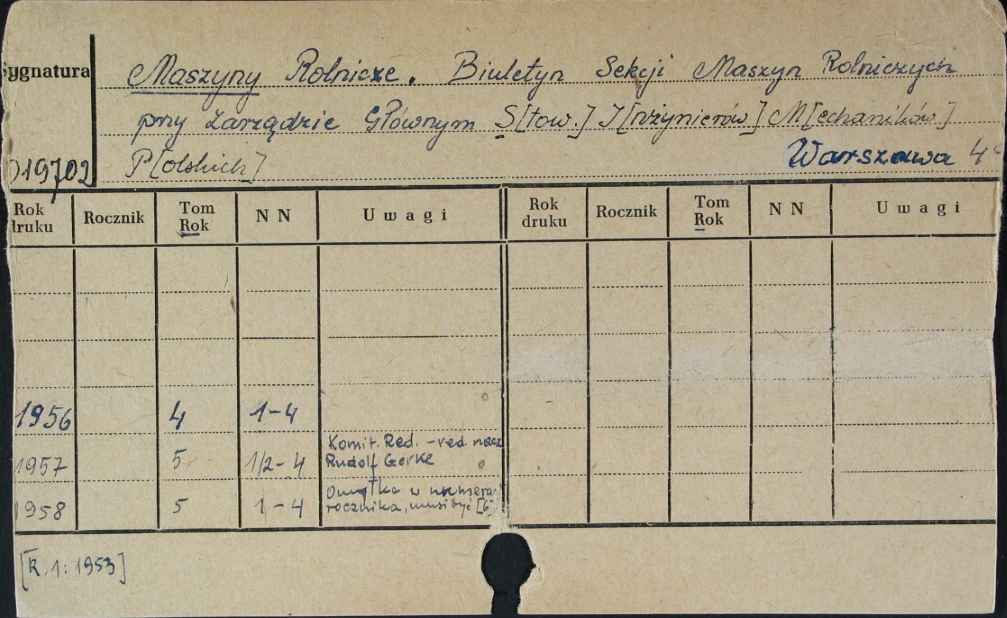 ygnatura
Maszyny Rolnicze. Biuletyn Sekcji Maszyn Rolniczych
przy Zarządzie Głównym S[tow.] I[nżynierów] M[echaników]
19702 P[olskich] Warszawa 4°
Rok druku Rocznik Tom Rok N N Uwagi Rok druku Rocznik Tom Rok N N Uwagi
1956 4 1-4
1957 5 1/2-4 Komit. Red. - red. nacz. Rudolf Gerke
1958 5 1-4 Omyłka w numera rocznika, musi być [6]
[R. 1: 1953]